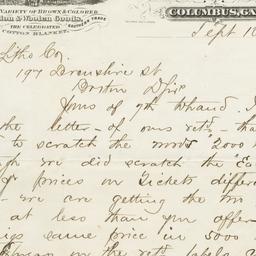 VARIETY OF BROWN & COLORED
ton & Woolen Goods,
THE CELEBRATED
SOUTHERN TRADE
COTTON BLANKET.
COLUMBUS, GA
Sept 10
Litho Co.
197 Devonshire St
Boston
Yours of 7th I
the letter - of ours retd - tha
to scratch the words "2000
we did scratch the "Ea
prices on Tickets differ
we are getting the
at less than you offer
same price in 5000
on the retd